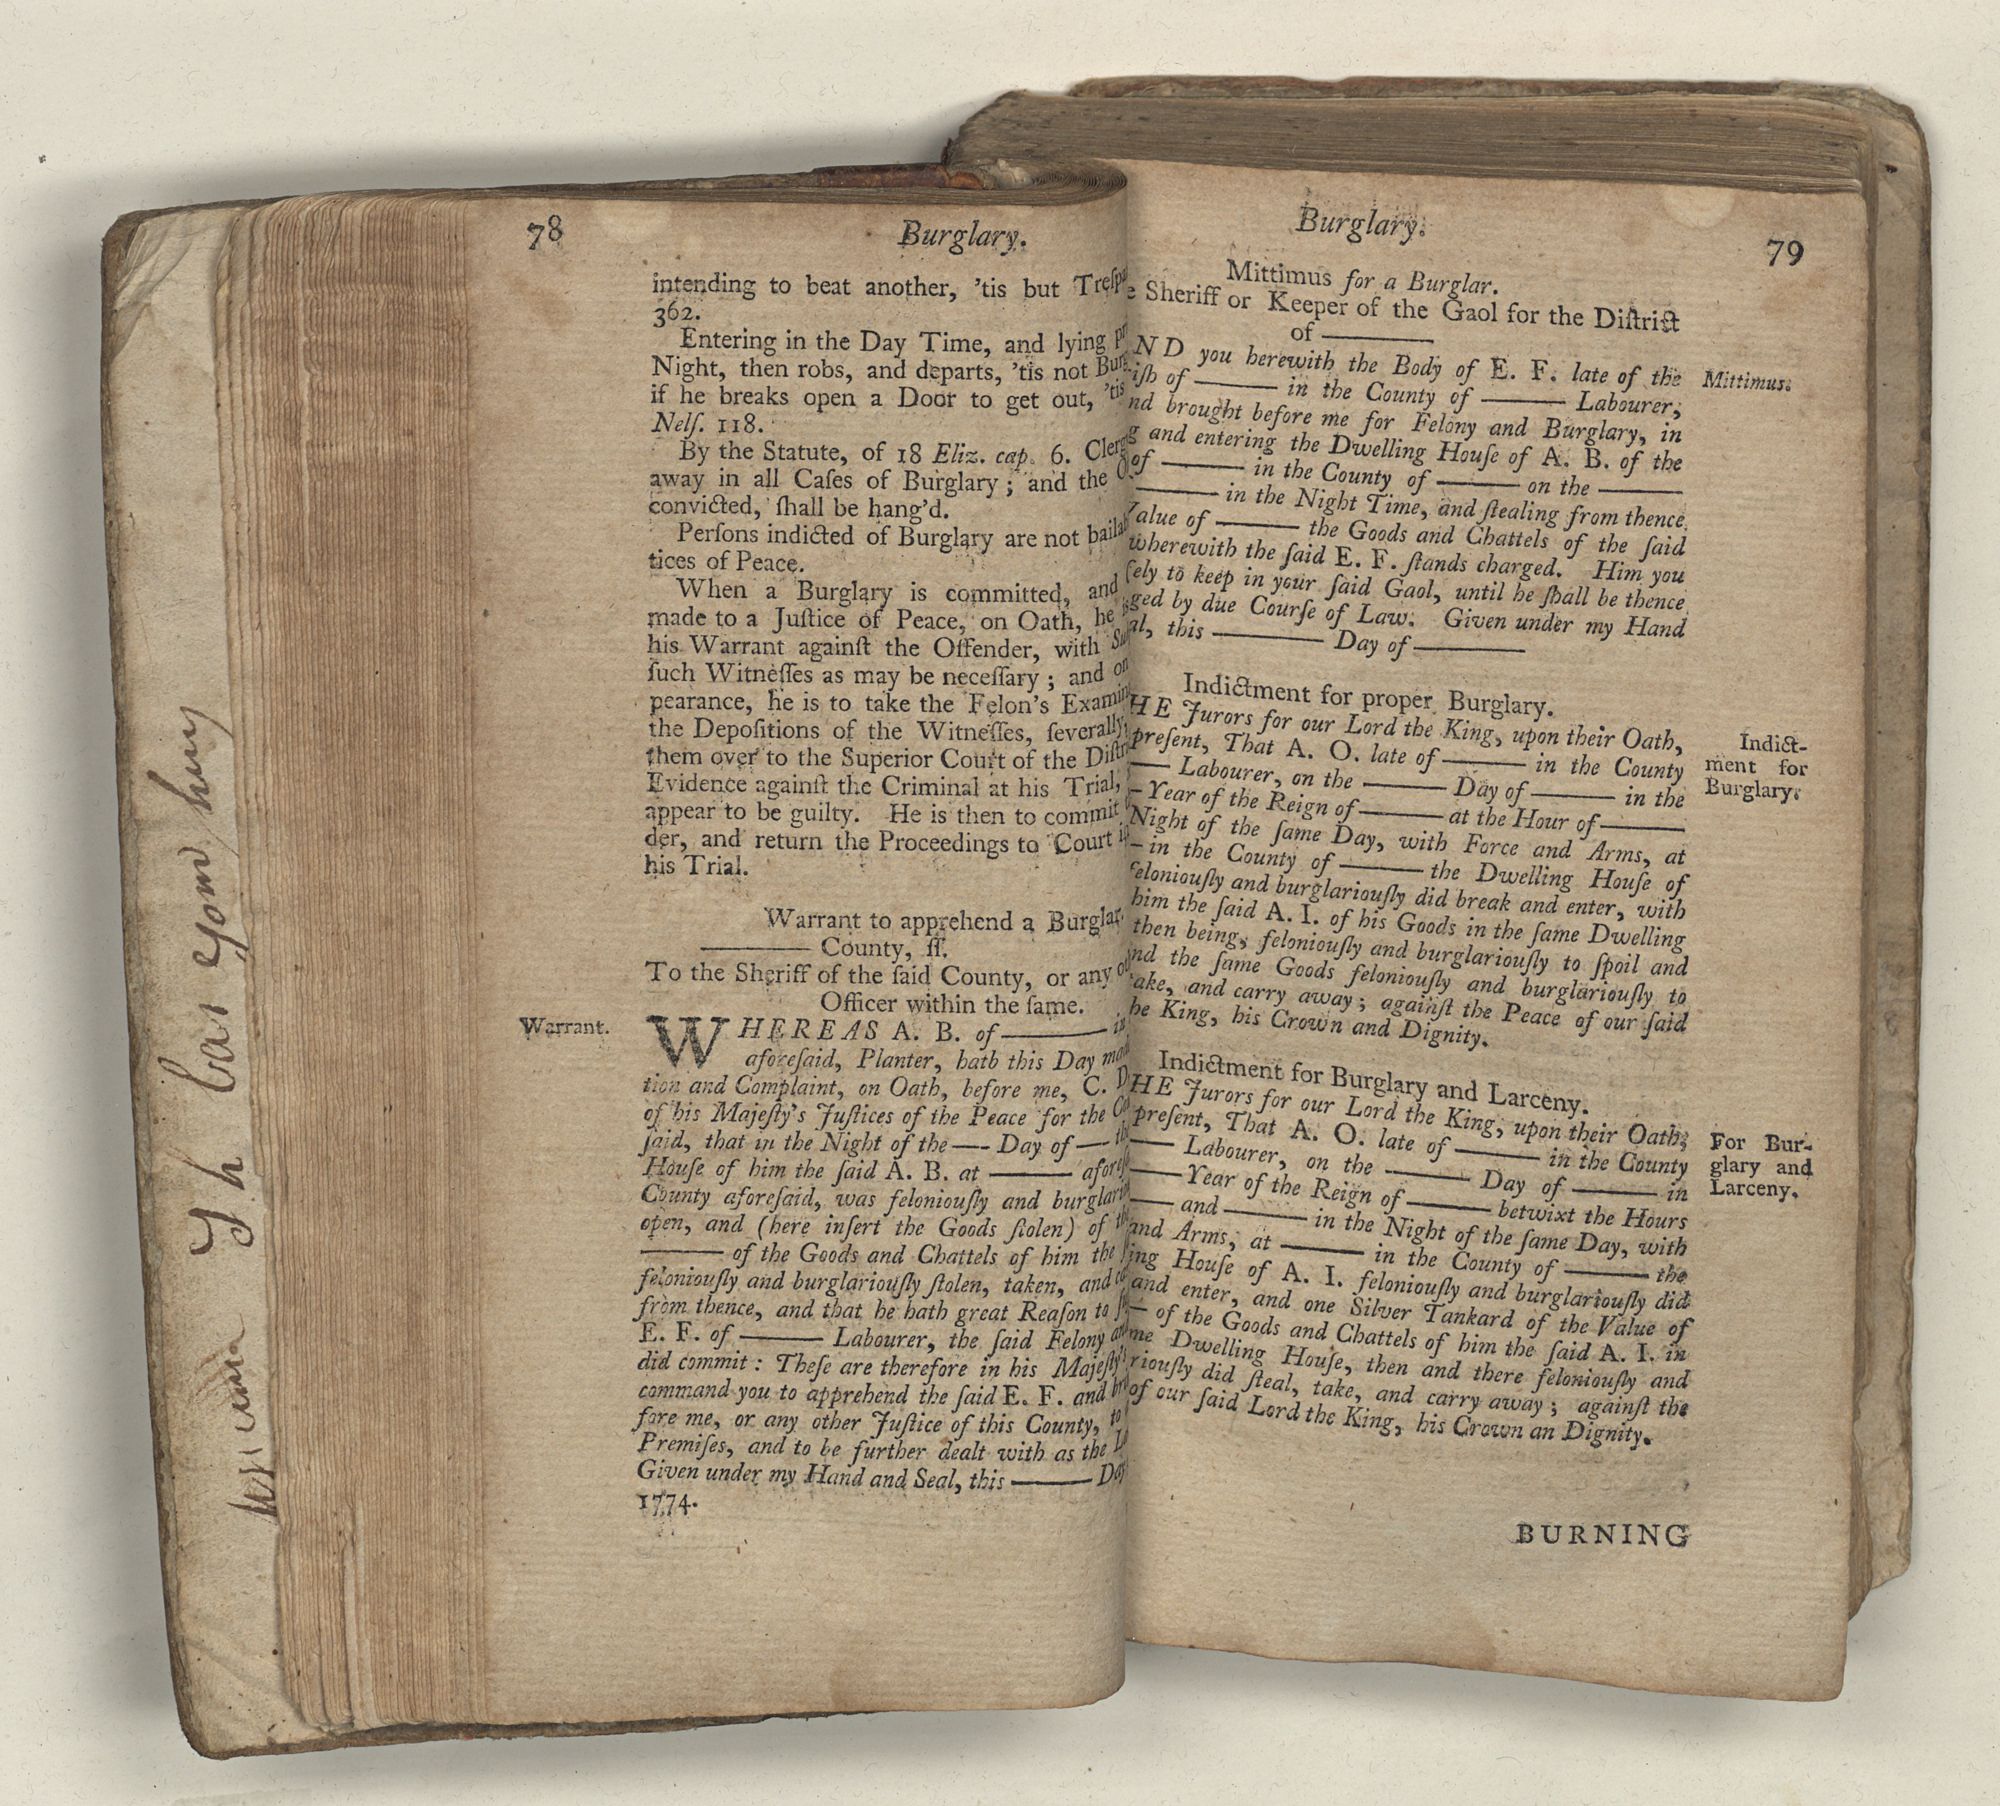 78
Burglary.
intending to beat another, 'tis but
362.
Entering in the Day Time, and lying
Night, then robs, and departs, 'tis not
if he breaks open a Door to get out, 'tis
Nelſ. 118.
By the Statute, of 18 Eliz. cap. 6.
away in all Caſes of Burglary; and the
convicted, ſhall be hang'd.
Perſons indicted of Burglary are not
tices of Peace.
When a Burglary is committed, and
made to a Juſtice of Peace, on Oath, he
his Warrant againſt the Offender, with
ſuch Witneſſes as may be neceſſary; and on
pearance, he is to take the Felon's
the Depoſitions of the Witneſſes, ſeverally,
them over to the Superior Court of the
Evidence againſt the Criminal at his Trial,
appear to be guilty. He is then to commit
der, and return the Proceedings to Court
his Trial.
Warrant to apprehend a Burglar.
——— County, ſſ.
To the Sheriff of the ſaid County, or any
Officer within the ſame.
Warrant.
WHEREAS A. B. of ——— in
aforeſaid, Planter, hath this Day
tion and Complaint, on Oath, before me, C. D.
of his Majeſty's Juſtices of the Peace for the
ſaid, that in the Night of the —— Day of ——
Houſe of him the ſaid A. B. at ———
County aforeſaid, was feloniouſly and
open, and (here inſert the Goods ſtolen) of
——— of the Goods and Chattels of him the
feloniouſly and burglariouſly ſtolen, taken, and
from thence, and that he hath great Reaſon to
E. F. of ——— Labourer, the ſaid Felony
did commit: Theſe are therefore in his Majeſty's
command you to apprehend the ſaid E. F. and
fore me, or any other Juſtice of this County, to
Premiſes, and to be further dealt with as the
Given under my Hand and Seal, this ———
1774.
Burglary.
79
Mittimus for a Burglar.
Sheriff or Keeper of the Gaol for the Diſtrict
of ———
ND you herewith the Body of E. F. late of the
Mittimus.
iſh of ——— in the County of ——— Labourer,
nd brought before me for Felony and Burglary, in
g and entering the Dwelling Houſe of A. B. of the
of ——— in the County of ——— on the ———
——— in the Night Time, and ſtealing from thence
Value of ——— the Goods and Chattels of the ſaid
wherewith the ſaid E. F. ſtands charged. Him you
ſely to keep in your ſaid Gaol, until he ſhall be thence
ged by due Courſe of Law. Given under my Hand
al, this ——— Day of ———
Indictment for proper Burglary.
HE Jurors for our Lord the King, upon their Oath,
Indict-
ment for
Burglary.
preſent, That A. O. late of ——— in the County
—— Labourer, on the ——— Day of ——— in the
– Year of the Reign of ——— at the Hour of ———
Night of the ſame Day, with Force and Arms, at
– in the County of ——— the Dwelling Houſe of
feloniouſly and burglariouſly did break and enter, with
him the ſaid A. I. of his Goods in the ſame Dwelling
then being, feloniouſly and burglariouſly to ſpoil and
nd the ſame Goods feloniouſly and burglariouſly to
take, and carry away; againſt the Peace of our ſaid
he King, his Crown and Dignity.
Indictment for Burglary and Larceny.
HE Jurors for our Lord the King, upon their Oath,
For Bur-
glary and
Larceny.
preſent, That A. O. late of ——— in the County
—— Labourer, on the ——— Day of ——— in
—— Year of the Reign of ——— betwixt the Hours
—— and ——— in the Night of the ſame Day, with
and Arms, at ——— in the County of ——— the
ing Houſe of A. I. feloniouſly and burglariouſly did
and enter, and one Silver Tankard of the Value of
— of the Goods and Chattels of him the ſaid A. I. in
me Dwelling Houſe, then and there feloniouſly and
riouſly did ſteal, take, and carry away; againſt the
of our ſaid Lord the King, his Crown an Dignity.
BURNING